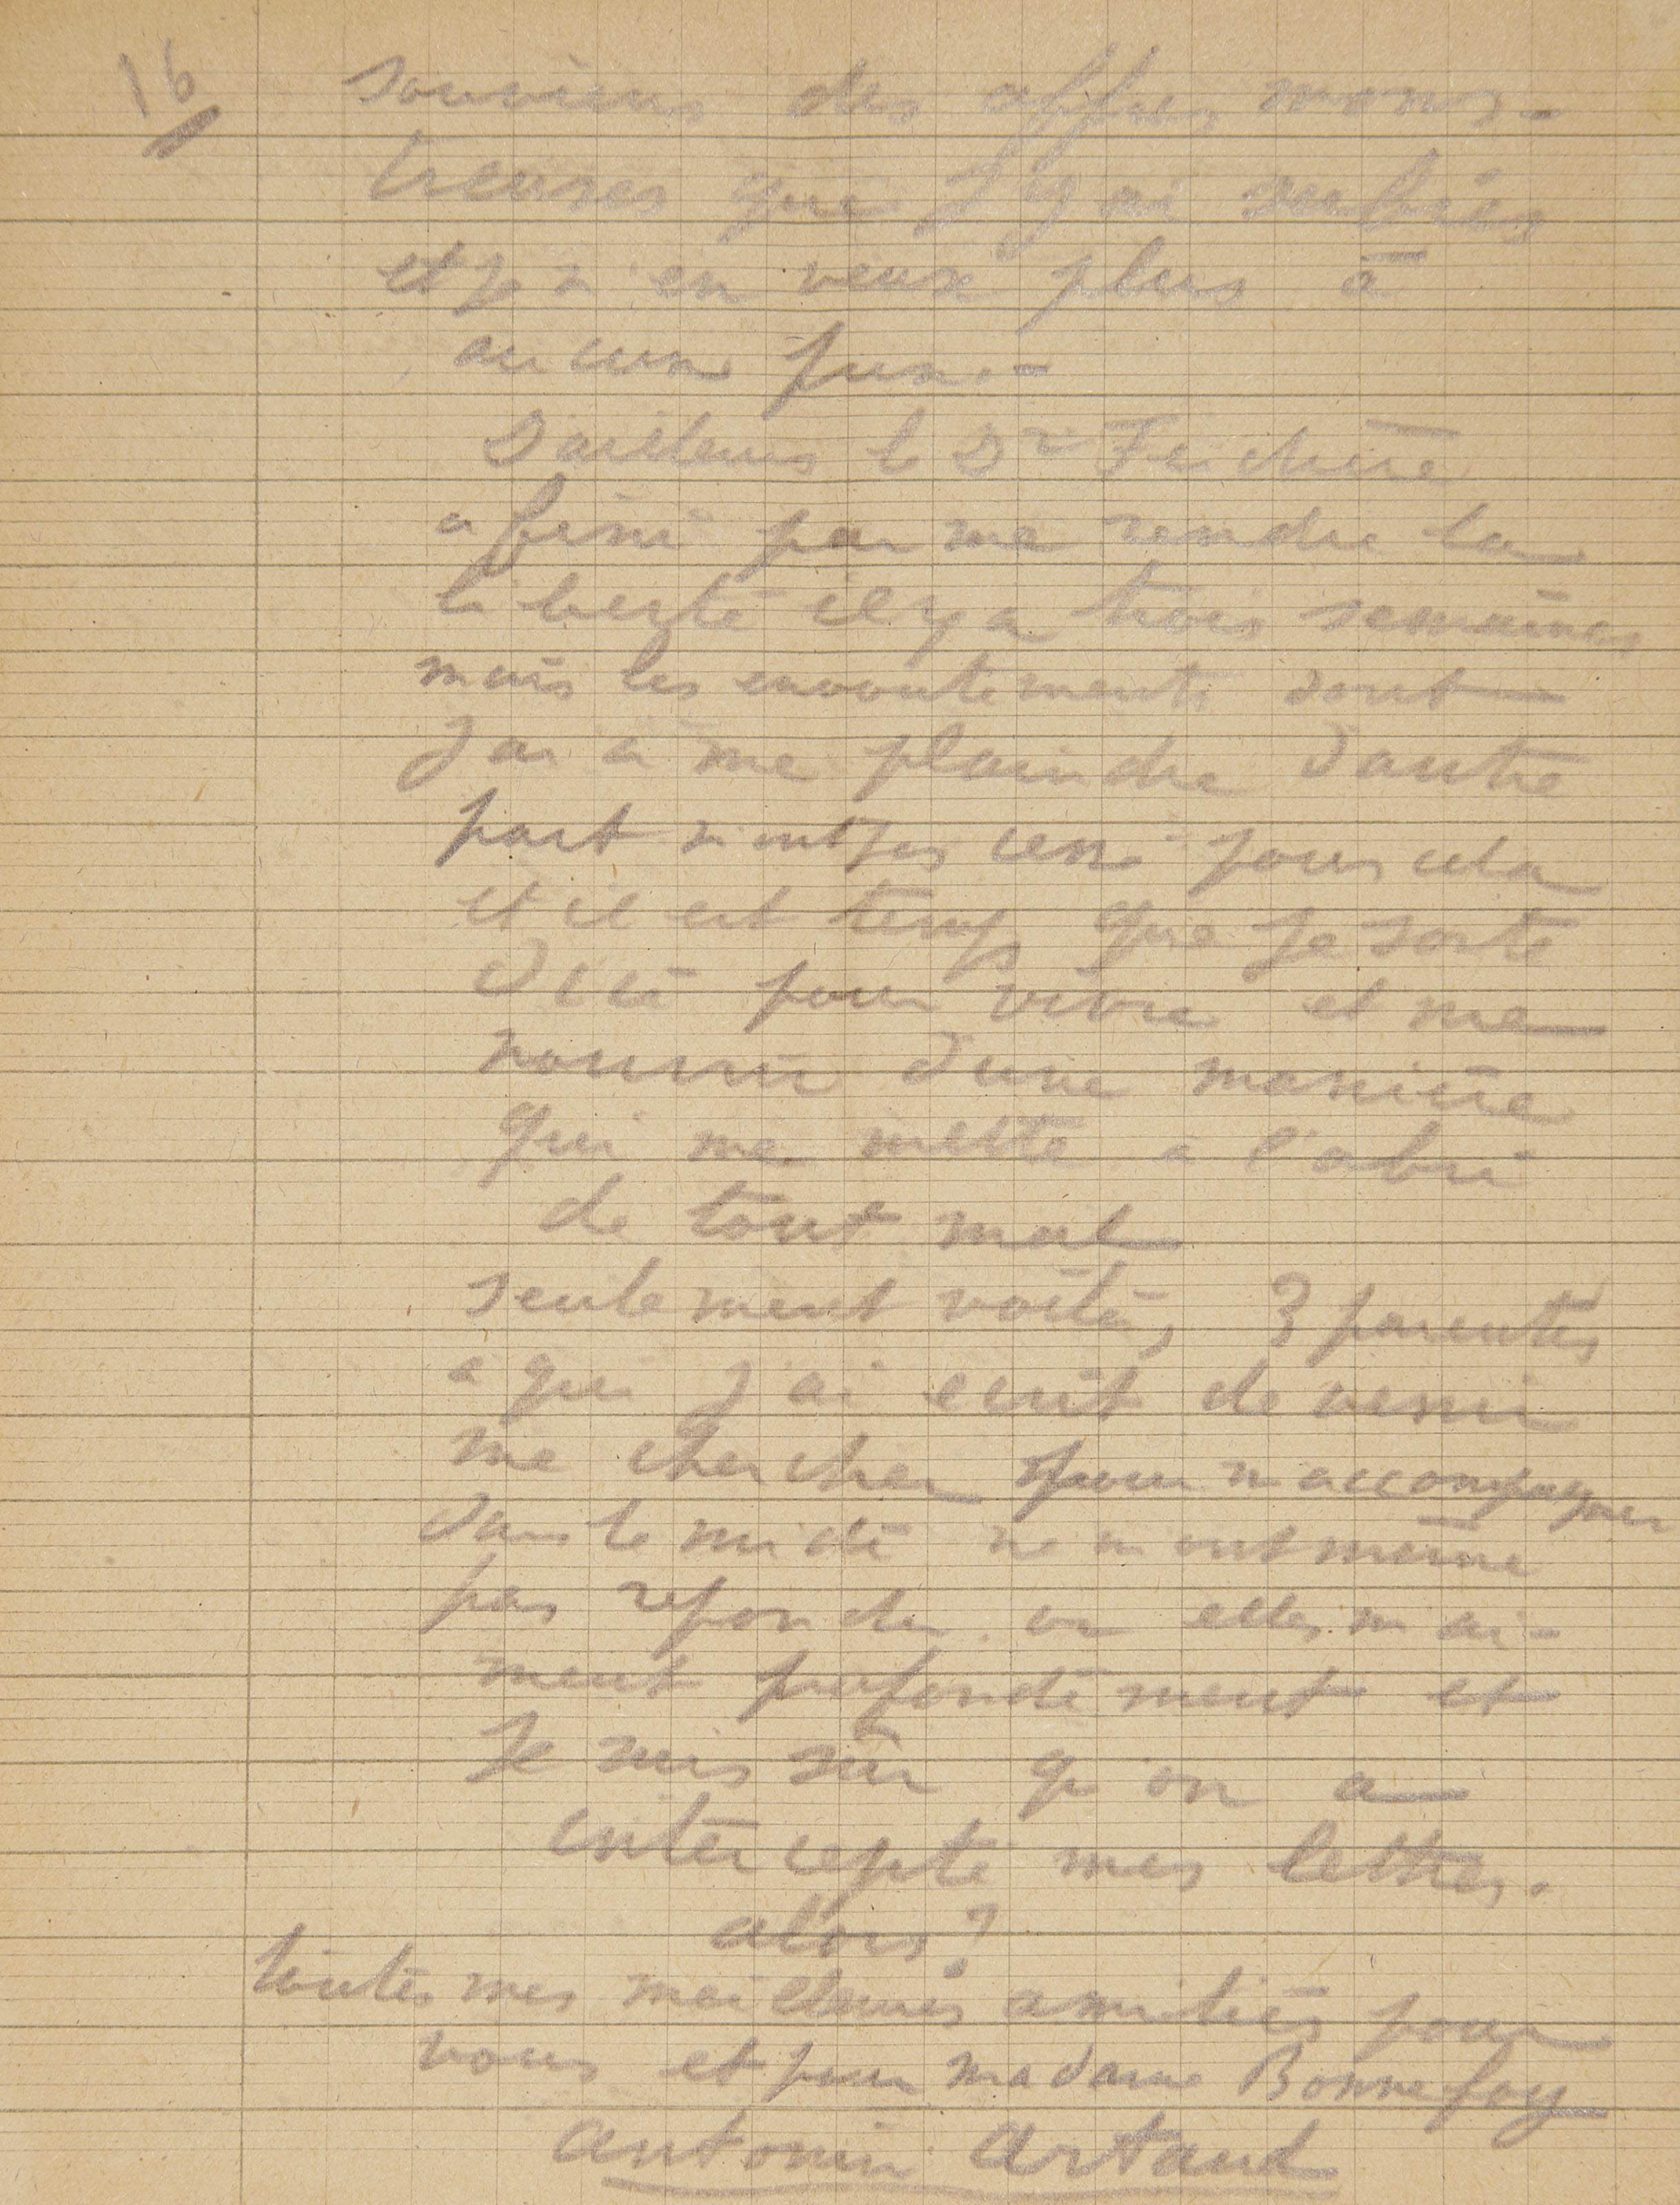 16
souviens des affres mons-
treuses que j'y ai subies
et je n'en veux plus à
aucun prix. -
D'ailleurs le Dr Ferdière
a fini par me rendre la
liberté il y a trois semaines
mais les envoûtements dont
j'ai à me plaindre d'autre
part n'ont pas cessé pour cela
et il est temps que je sorte
d'ici pour vivre et me
nourrir d'une manière
qui me mette à l'abri
de tout mal
seulement voilà, 3 parentes
à qui j'ai écrit de venir
me chercher pour m'accompagner
dans le midi ne m'ont même
pas répondu. or elles m'ai-
ment profondément et
je suis sûr qu'on a
intercepté mes lettres.
alors?
toutes mes meilleures amitiés pour
vous et pour madame Bonnefoy
Antonin Artaud